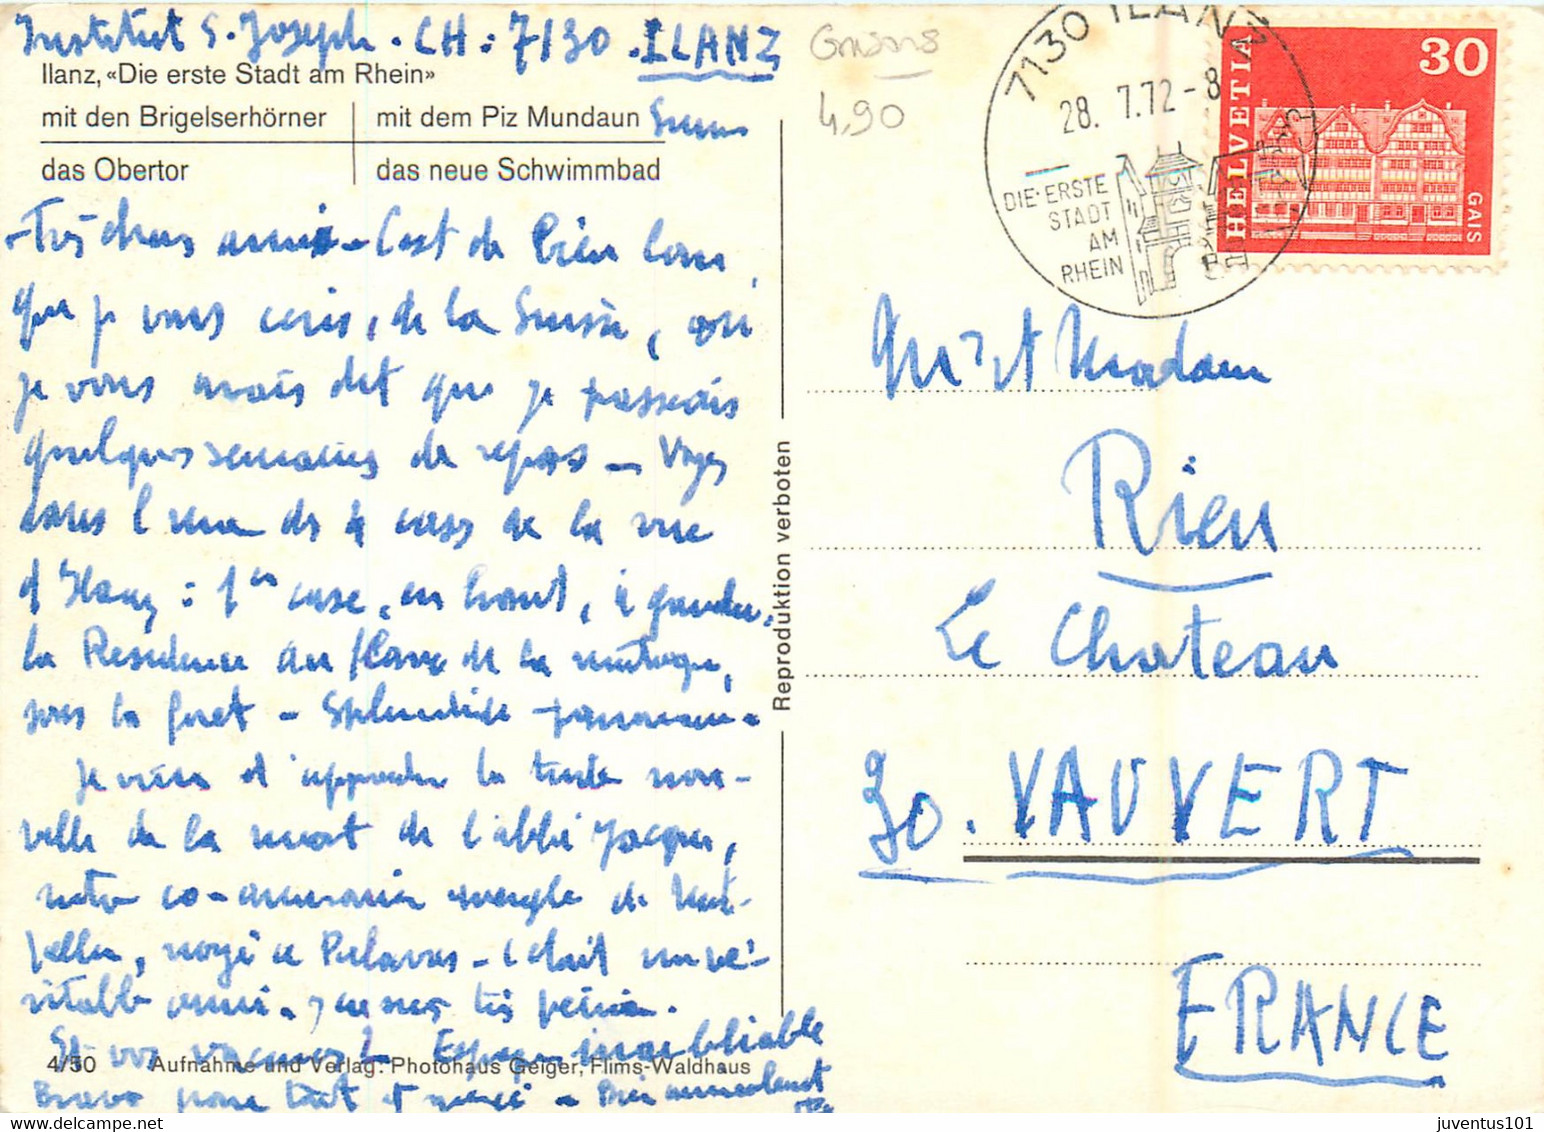 Institut S. Joseph. CH: 7130. ILANZ
Grisons
4,90
Ilanz, «Die erste Stadt am Rhein»
mit den Brigelserhörner
mit dem Piz Mundaun
Suisse
das Obertor
das neue Schwimmbad
7130 ILANZ
28. 7.72-8
DIE ERSTE
STADT
AM
RHEIN
HELVETIA
30
GAIS
Très chers amis - C'est de bien loin,
que je vous écris, de la Suisse, où
je vous avais dit que je passerais
quelques semaines de repos - Voyez
dans l'une des 4 cases de la vue
d'Ilanz : 1ère case, en haut, à gauche,
la Résidence au flanc de la montagne,
sous la forêt - Splendide panorama.
Je viens d'apprendre la triste nou-
velle de la mort de l'abbé Jacques,
notre aveugle de Mont-
pellier, noyé à Palavas - c'était un vé-
ritable ami. J'en suis très peiné.
Et vos vacances? Espagne inoubliable
Bravo pour tout et merci - Bien amicalement
Mr et Madame
Rieu
Le Chateau
30. VAUVERT
FRANCE
Reproduktion verboten
4/50 Aufnahme und Verlag: Photohaus Geiger, Flims-Waldhaus
juventus101